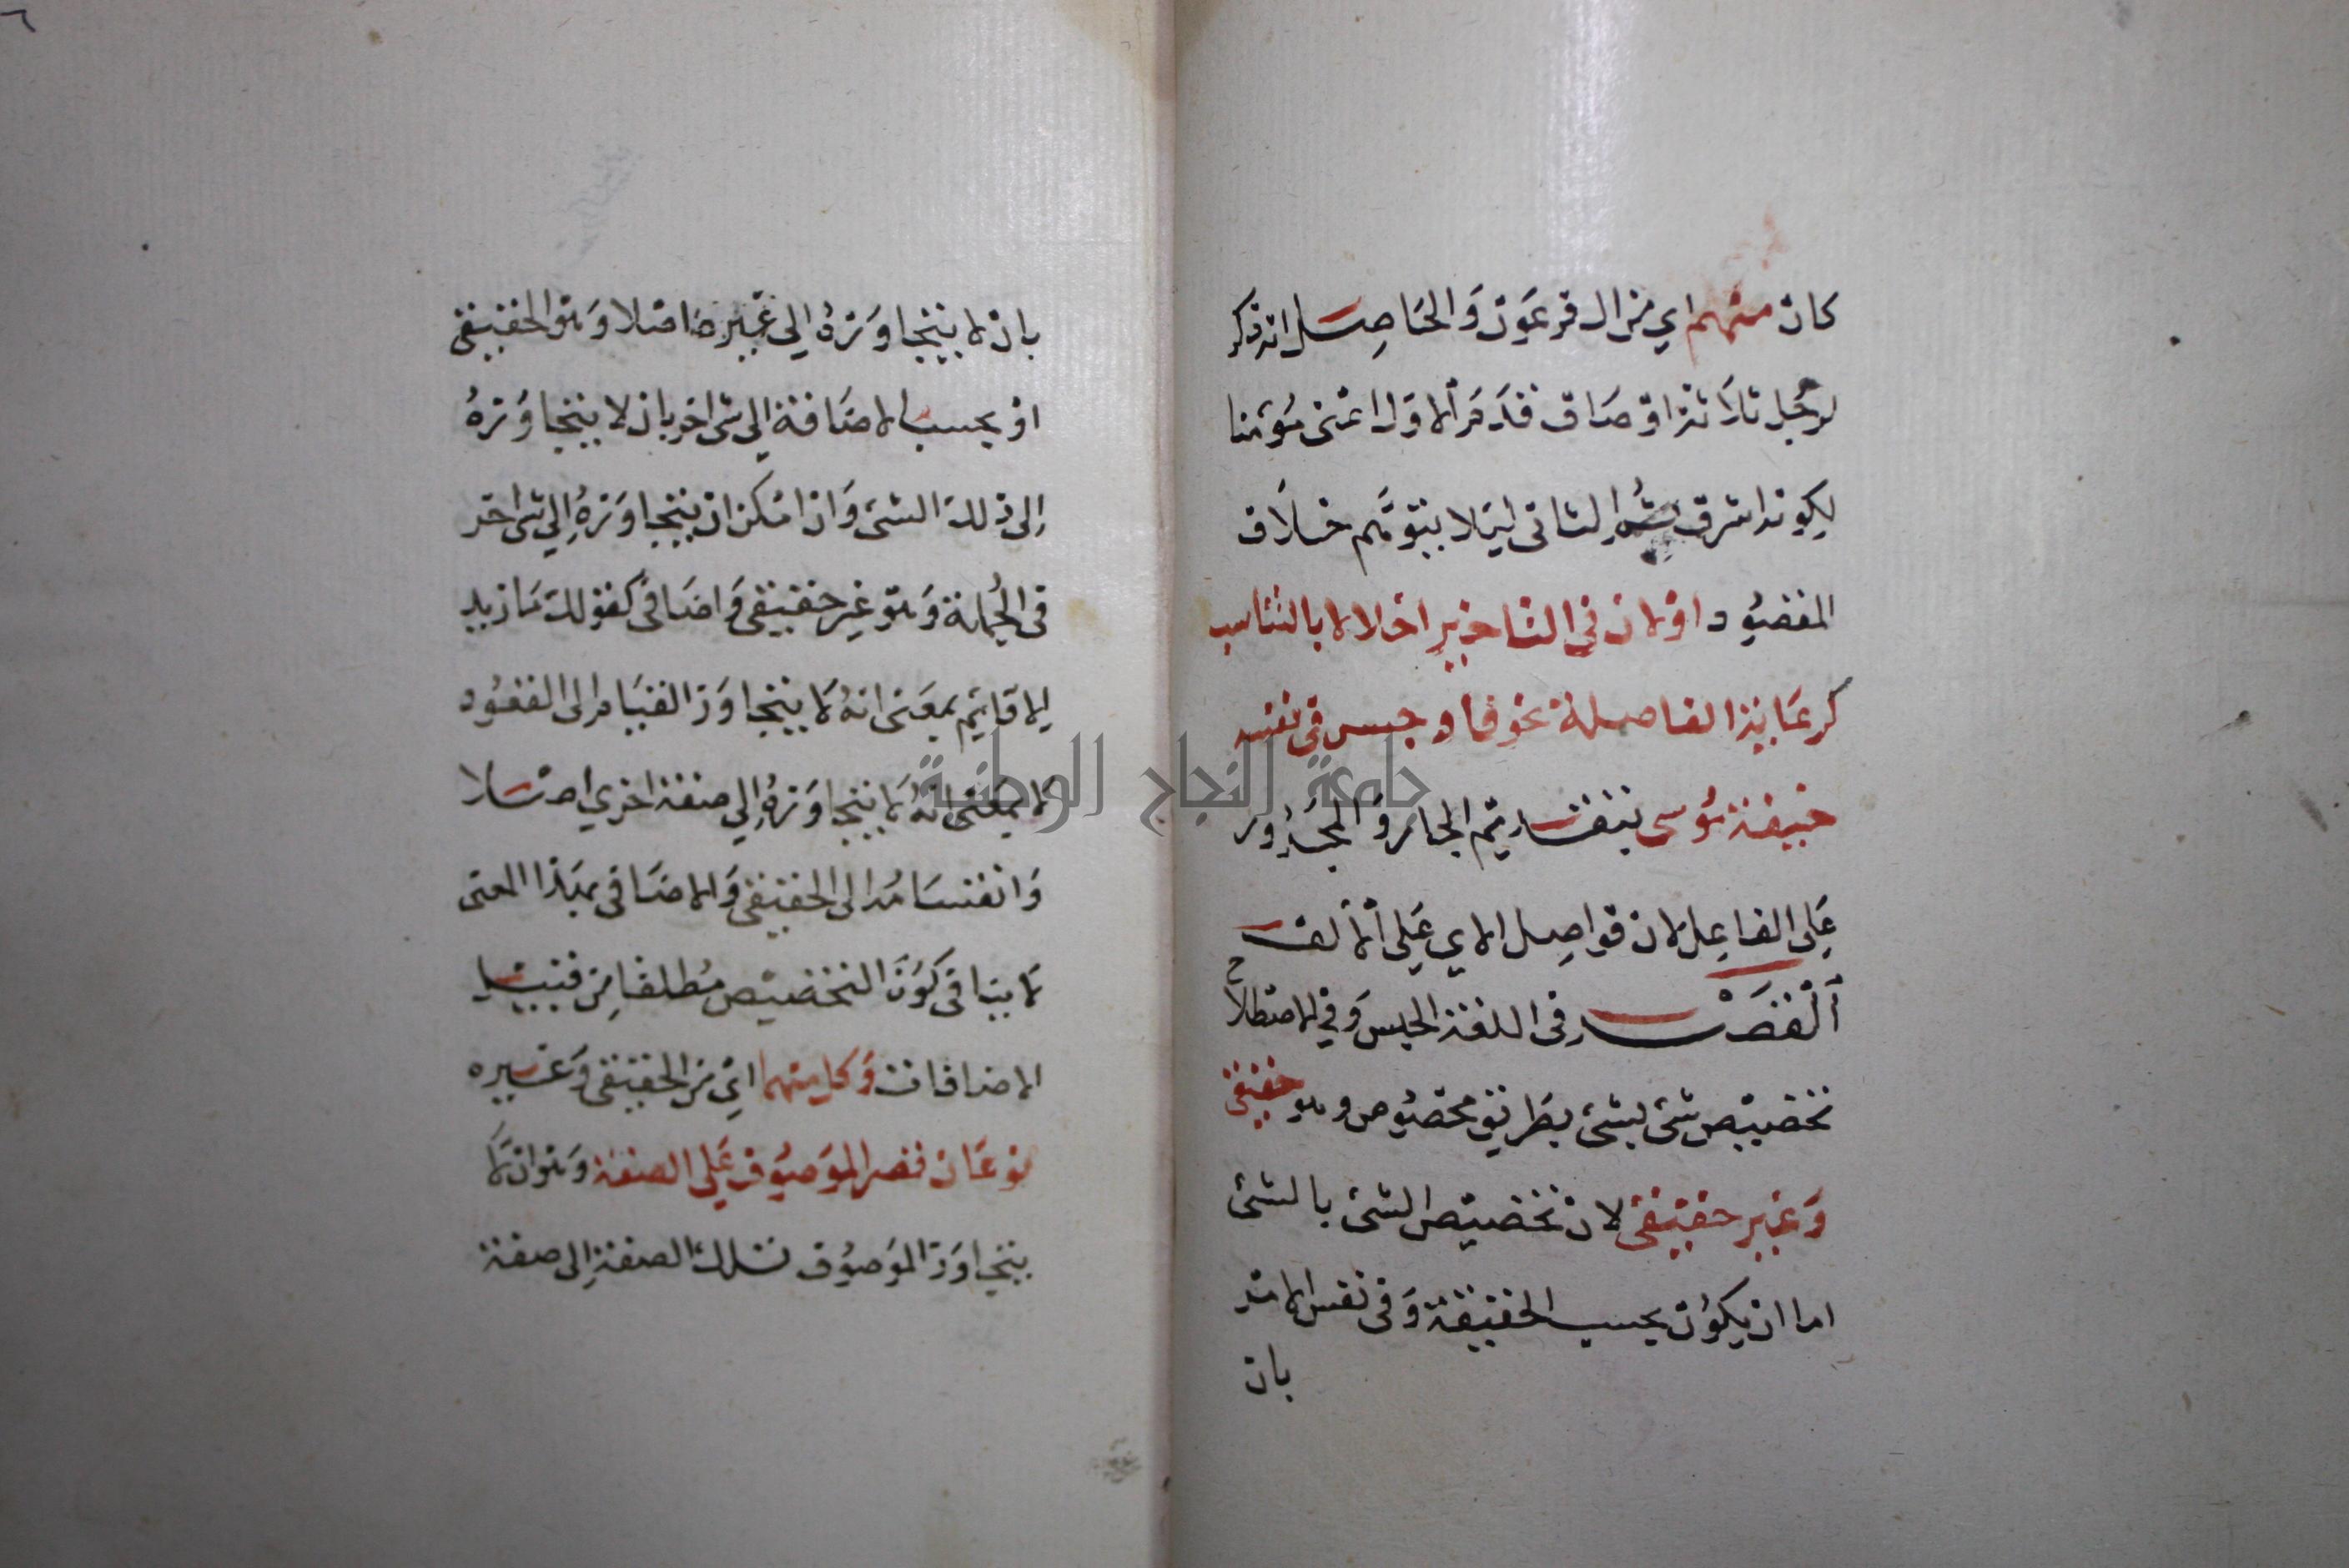 كان منهم اي من ال فرعون والحاصل انه ذكر
لرجل ثلاثة اوصاف قدم الاول اعنى مؤمنا
ليكونه اشرف الثانى ليلا يتوهم خلاف
المقصود او لان في التاخير اخلالا بالتناسب
كرعاية الفاصلة نحو فاوجس فى نفسه
خيفة موسى بتقديم الجار والمجرور
على الفاعل لان فواصل الاي على الالف
القصر فى اللغة الحبس وفي الاصطلاح
تخصيص شئ بشئ بطريق مخصوص وهو حقيقى
وغير حقيقى لان تخصيص الشئ بالشئ
اما ان يكون بحسب الحقيقة وفى نفس الامر
بان
٦
بان لا يتجاوزه الى غيره اصلا وهو الحقيقى
او بحسب الاضافة الى شى اخر بان لا يتجاوزه
الى ذلك الشئ وان امكن ان يتجاوزه الى شى اخر
فى الجملة وهو غير حقيقى واضافى كقولك ما زيد
الا قايم بمعنى انه لا يتجاوز القيام الى القعود
لا بمعنى انه لا يتجاوزه الى صفة اخري اصلا
وانقسامه الى الحقيقى والاضافى بهذا المعنى
لا ينافى كون التخصيص مطلقا من قبيل
الاضافات وكل منهما اي من الحقيقى وغيره
نوعان قصر الموصوف على الصفة وهو ان لا
يتجاوز الموصوف تلك الصفة الى صفة
جامعة النجاح الوطنية